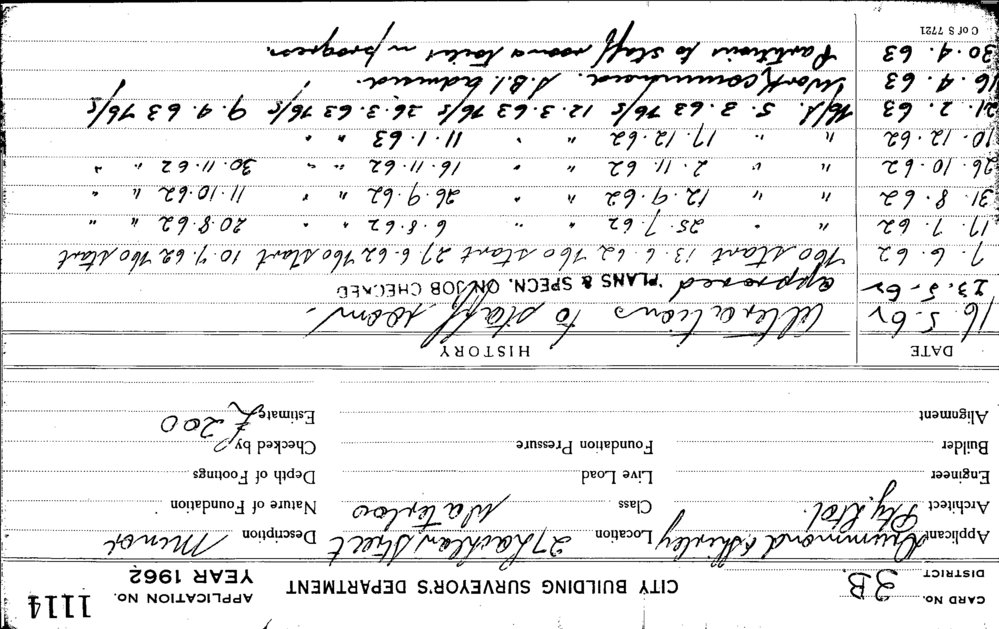 CARD NO.
DISTRICT 2B.
CITY BUILDING SURVEYOR'S DEPARTMENT
APPLICATION NO. 1114
YEAR 1962
Applicant Drummond & Shirley Location 27 Lachlan Street Description Minor
Pty. Ltd. Waterloo
Architect Class Nature of Foundation
Engineer Live Load Depth of Footings
Builder Foundation Pressure Checked by
Alignment Estimate £200
DATE HISTORY
16. 5. 62 Alterations to staff room.
23. 5. 62 approved PLANS & SPECN. ON JOB CHECKED
7. 6. 62 No start 13. 6. 62 No start 27. 6. 62 No start 10. 7. 62 No start
17. 7. 62 " " 25. 7. 62 " " 6. 8. 62 " " 20. 8. 62 " "
31. 8. 62 " " 12. 9. 62 " " 26. 9. 62 " " 11. 10. 62 " "
26. 10. 62 " " 2. 11. 62 " " 16. 11. 62 " " 30. 11. 62 " "
10. 12. 62 " " 17. 12. 62 " " 11. 1. 63 " "
21. 2. 63 N/S. 5. 3. 63 N/S 12. 3. 63 N/S 26. 3. 63 N/S 9. 4. 63 N/S
16. 4. 63 Work commenced. D.B.I. advised.
30. 4. 63 Partitions to staff room & toilet in progress.
C of S 7721